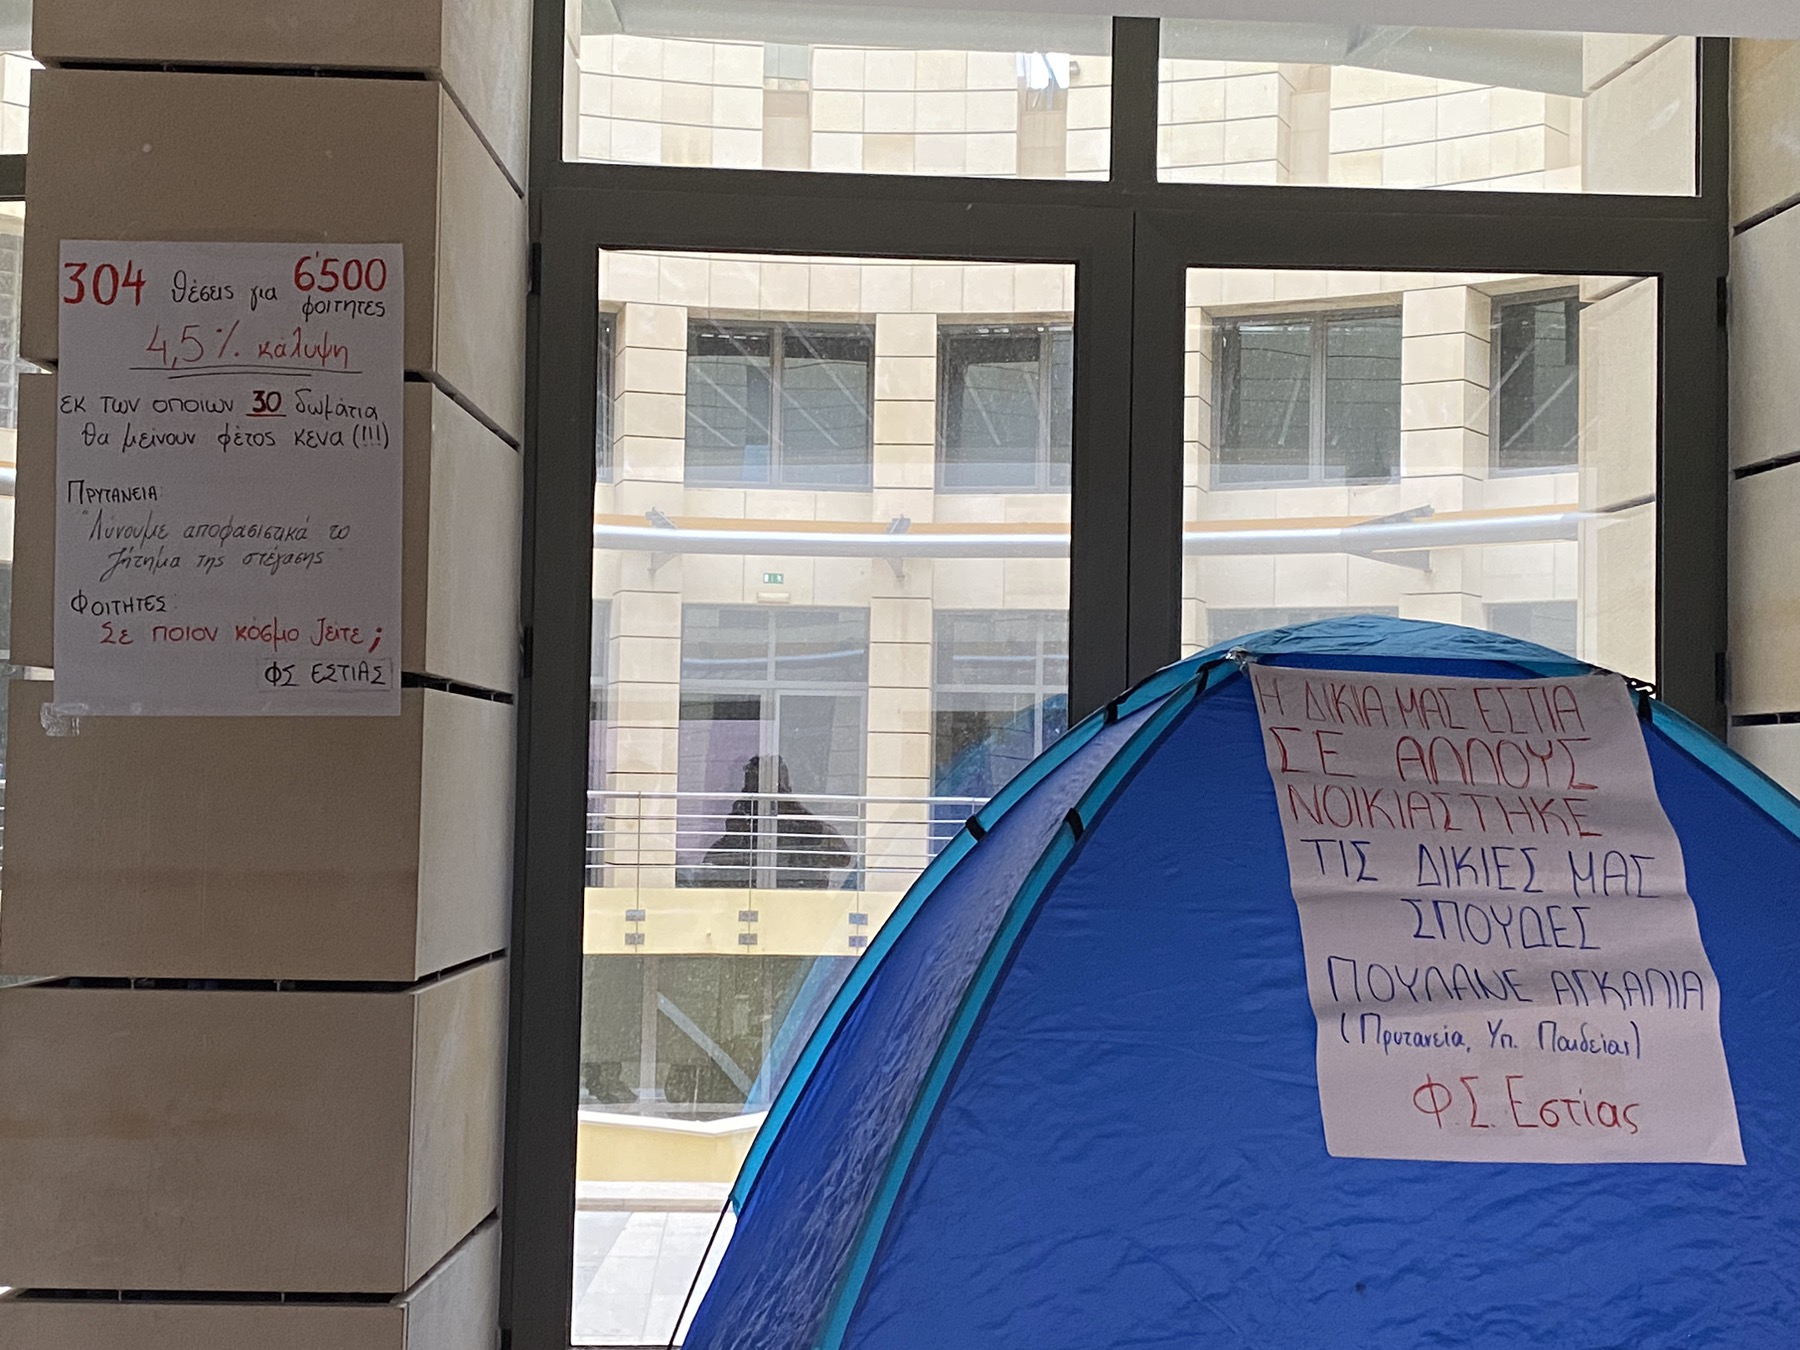 304 θέσεις για 6500
φοιτητες
4,5% κάλυψη
εκ των οποίων 30 δωμάτια
θα μείνουν φέτος κενα (!!!)
ΠΡΥΤΑΝΕΙΑ:
"Λύνουμε αποφασιστικά το
ζήτημα της στέγασης"
ΦΟΙΤΗΤΕΣ:
Σε ποιον κόσμο ζείτε;
ΦΣ ΕΣΤΙΑΣ
Η ΔΙΚΙΑ ΜΑΣ ΕΣΤΙΑ
ΣΕ ΑΛΛΟΥΣ
ΝΟΙΚΙΑΣΤΗΚΕ
ΤΙΣ ΔΙΚΙΕΣ ΜΑΣ
ΣΠΟΥΔΕΣ
ΠΟΥΛΑΝΕ ΑΓΚΑΛΙΑ
(Πρυτανεία, Υπ. Παιδείας)
Φ.Σ. Εστίας